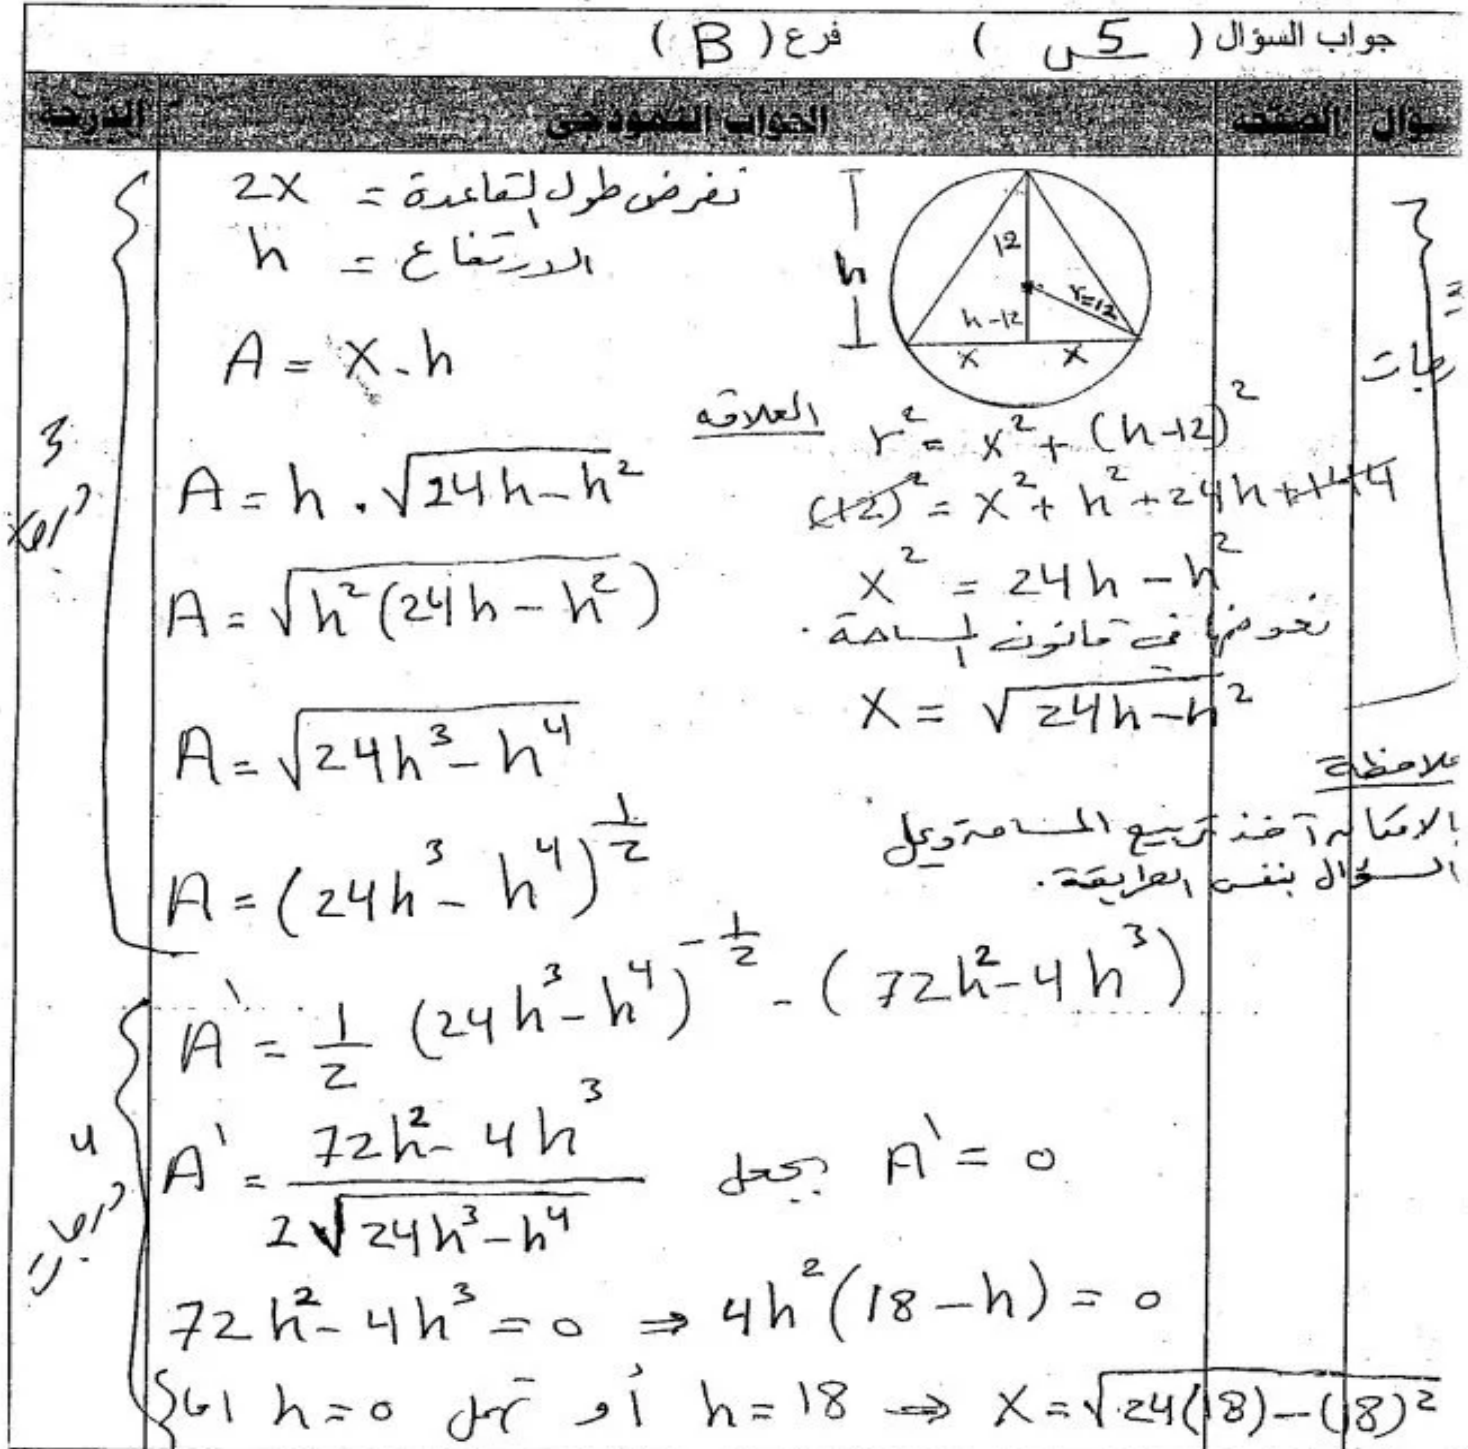 جواب السؤال ( س5 ) فرع ( B )
الصفحة الجواب النموذجي الدرجة
نفرض طول القاعدة = 2X
الارتفاع = h
A = X . h
h
12
r=12
h-12
X X
العلاقة
r² = x² + (h-12)²
(12)² = x² + h² - 24h + 144
x² = 24h - h²
نعوضها في قانون المساحة .
X = √24h-h²
A = h . √24h-h²
A = √h²(24h-h²)
A = √24h³-h⁴
A = (24h³-h⁴)^½
3
درجات
ملاحظة
السؤال بنفس الطريقة .
A' = ½ (24h³-h⁴)^-½ . (72h²-4h³)
A' = 72h²-4h³ / 2√24h³-h⁴ نجعل A' = 0
72h²-4h³ = 0 ⇒ 4h²(18-h) = 0
اما h=0 تهمل أو h=18 ⇒ X=√24(18)-(18)²
4
درجات